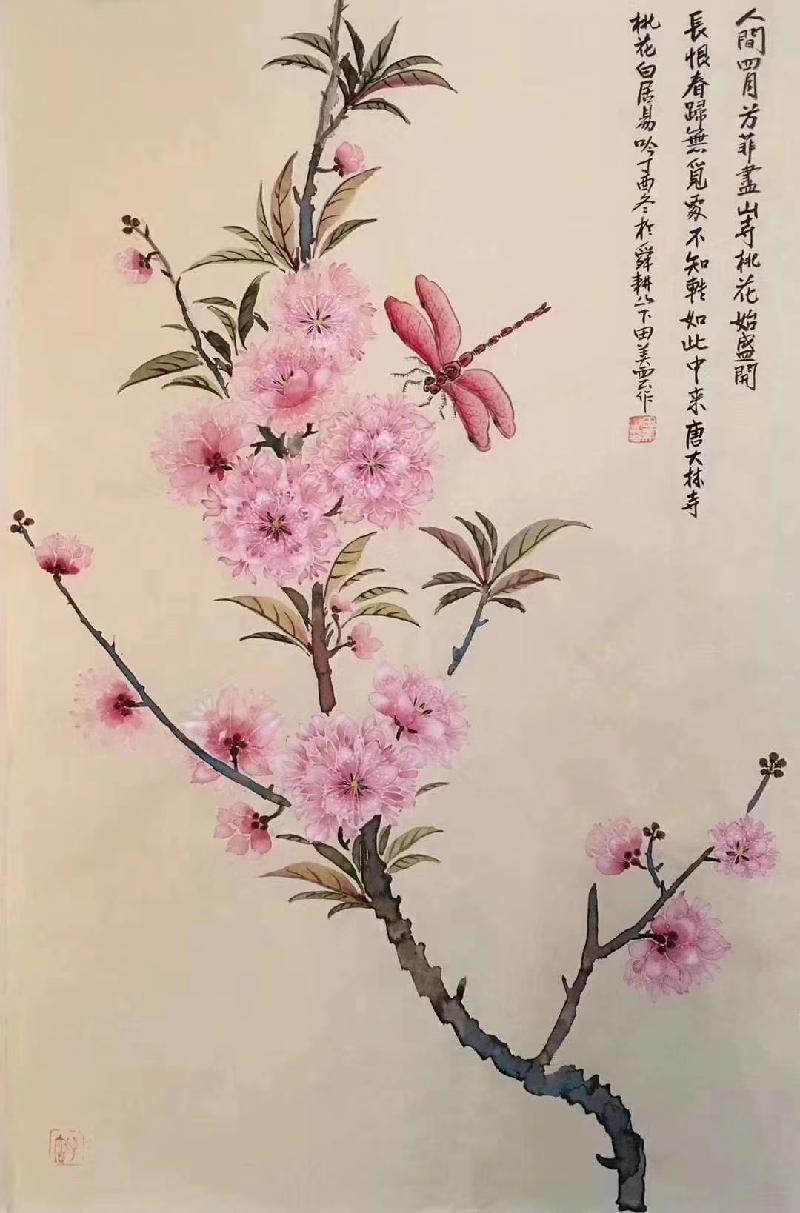 人間四月芳菲盡山寺桃花始盛開
長恨春歸無覓處不知轉如此中來唐大林寺
桃花白居易吟丁酉冬於舜耕山下田美雲作